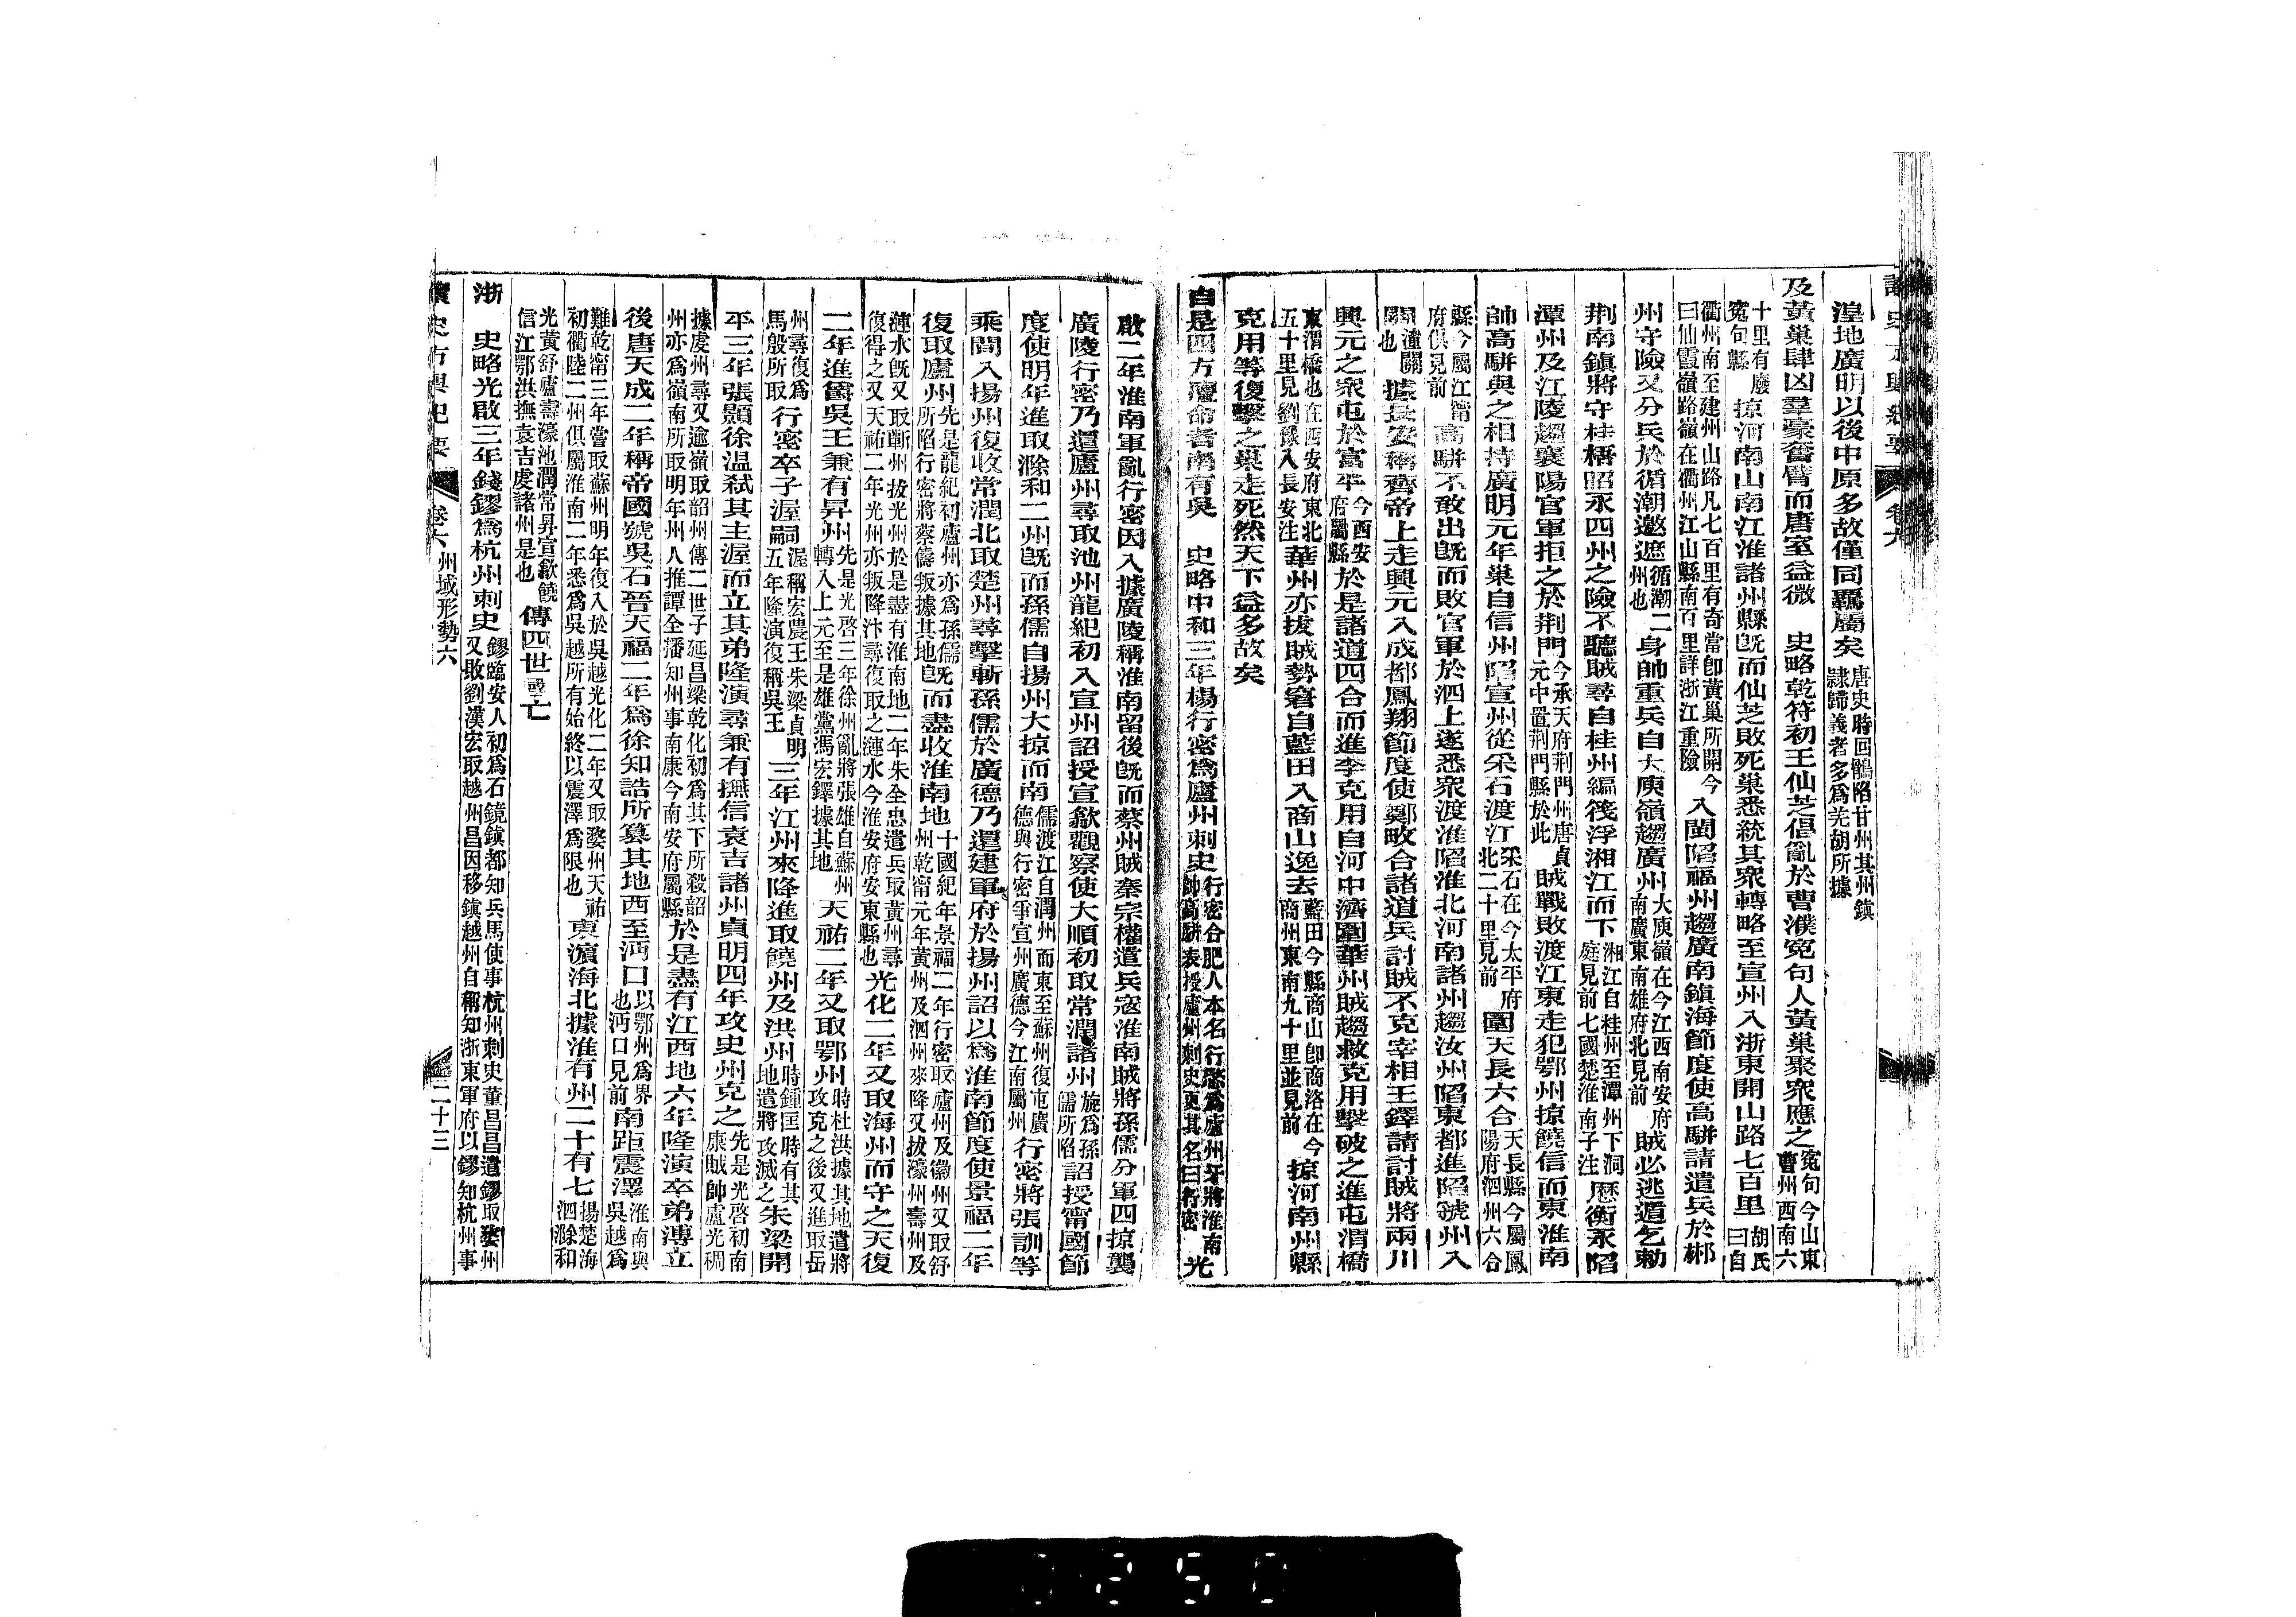 讀史方輿紀要 卷六
湟地廣明以後中原多故僅同羈屬矣唐史時回鶻陷甘州其州鎮隸歸義者多為羌胡所據
及黃巢肆凶羣豪奮臂而唐室益微 史略乾符初王仙芝倡亂於曹濮冤句人黃巢聚衆應之冤句今山東曹州西南六
十里有廢冤句縣掠河南山南江淮諸州縣旣而仙芝敗死巢悉統其衆轉略至宣州入浙東開山路七百里胡氏曰自
衢州南至建州山路凡七百里有奇當卽黃巢所開今曰仙霞嶺路嶺在衢州江山縣南百里詳浙江重險入閩陷福州趨廣南鎮海節度使高駢請遣兵於郴
州守險又分兵於循潮邀遮循潮二州也身帥重兵自大庾嶺趨廣州大庾嶺在今江西南安府南廣東南雄府北見前賊必逃遁乞勅
荆南鎮將守桂梧昭永四州之險不聽賊尋自桂州編筏浮湘江而下湘江自桂州至潭州下洞庭見前七國楚淮南子注歷衡永陷
潭州及江陵趨襄陽官軍拒之於荆門今承天府荆門州唐貞元中置荆門縣於此賊戰敗渡江東走犯鄂州掠饒信而東淮南
帥高駢與之相持廣明元年巢自信州陷宣州從采石渡江采石在今太平府北二十里見前圍天長六合天長縣今屬鳳陽府泗州六合
縣今屬江甯府俱見前高駢不敢出旣而敗官軍於泗上遂悉衆渡淮陷淮北河南諸州趨汝州陷東都進陷虢州入
關潼關也據長安稱齊帝上走興元入成都鳳翔節度使鄭畋合諸道兵討賊不克宰相王鐸請討賊將兩川
興元之衆屯於富平今西安府屬縣於是諸道四合而進李克用自河中濟圍華州賊趨救克用擊破之進屯渭橋
東渭橋也在西安府東北五十里見劉豫入長安注華州亦拔賊勢窘自藍田入商山逸去藍田今縣商山卽商洛在今商州東南九十里並見前掠河南州縣
克用等復擊之巢走死然天下益多故矣
自是四方擅命者南有吳 史略中和三年楊行密為廬州刺史行密合肥人本名行愍為廬州牙將淮南帥高駢表授廬州刺史更其名曰行密光
啟二年淮南軍亂行密因入據廣陵稱淮南留後旣而蔡州賊秦宗權遣兵寇淮南賊將孫儒分軍四掠襲
廣陵行密乃還廬州尋取池州龍紀初入宣州詔授宣歙觀察使大順初取常潤諸州旋為孫儒所陷詔授甯國節
度使明年進取滁和二州旣而孫儒自揚州大掠而南儒渡江自潤州而東至蘇州復屯廣德與行密爭宣州廣德今江南屬州行密將張訓等
乘間入揚州復收常潤北取楚州尋擊斬孫儒於廣德乃還建軍府於揚州詔以為淮南節度使景福二年
復取廬州先是龍紀初廬州亦為孫儒所陷行密將蔡儔叛據其地旣而盡收淮南地十國紀年景福二年行密取廬州及徽州又取舒州乾甯元年黃州及泗州來降又拔濠州壽州及
漣水旣又取蘄州拔光州於是盡有淮南地二年朱全忠遣兵取黃州尋復得之又天祐二年光州亦叛降汴尋復取之漣水今淮安府安東縣也光化二年又取海州而守之天復
二年進爵吳王兼有昇州先是光啓三年徐州亂將張雄自蘇州轉入上元至是雄黨馮宏鐸據其地天祐二年又取鄂州時杜洪據其地遣將攻克之後又進取岳
州尋復為馬殷所取行密卒子渥嗣渥稱宏農王朱梁貞明五年隆演復稱吳王三年江州來降進取饒州及洪州時鍾匡時有其地遣將攻滅之朱梁開
平三年張顥徐温弑其主渥而立其弟隆演尋兼有撫信袁吉諸州貞明四年攻史州克之先是光啓初南康賊帥盧光稠
據虔州尋又逾嶺取韶州傳二世子延昌梁乾化初為其下所殺韶州亦為嶺南所取明年州人推譚全播知州事南康今南安府屬縣於是盡有江西地六年隆演卒弟溥立
後唐天成二年稱帝國號吳石晉天福二年為徐知誥所篡其地西至沔口以鄂州為界也沔口見前南距震澤淮南與吳越為
難乾甯三年嘗取蘇州明年復入於吳越光化二年又取婺州天祐初衢睦二州俱屬淮南二年悉為吳越所有始終以震澤為限也東濵海北據淮有州二十有七揚楚海泗滁和
光黃舒廬壽濠池潤常昇宣歙饒信江鄂洪撫袁吉虔諸州是也傳四世而亡
浙 史略光啟三年錢鏐為杭州刺史鏐臨安人初為石鏡鎮都知兵馬使事杭州刺史董昌昌遣鏐取婺州又敗劉漢宏取越州昌因移鎮越州自稱知浙東軍府以鏐知杭州事
讀史方輿紀要 卷六 州域形勢六 二十三